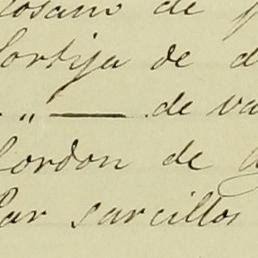 rosario de
Sortija de d
" — de va
Cordon de
Par sarcillos